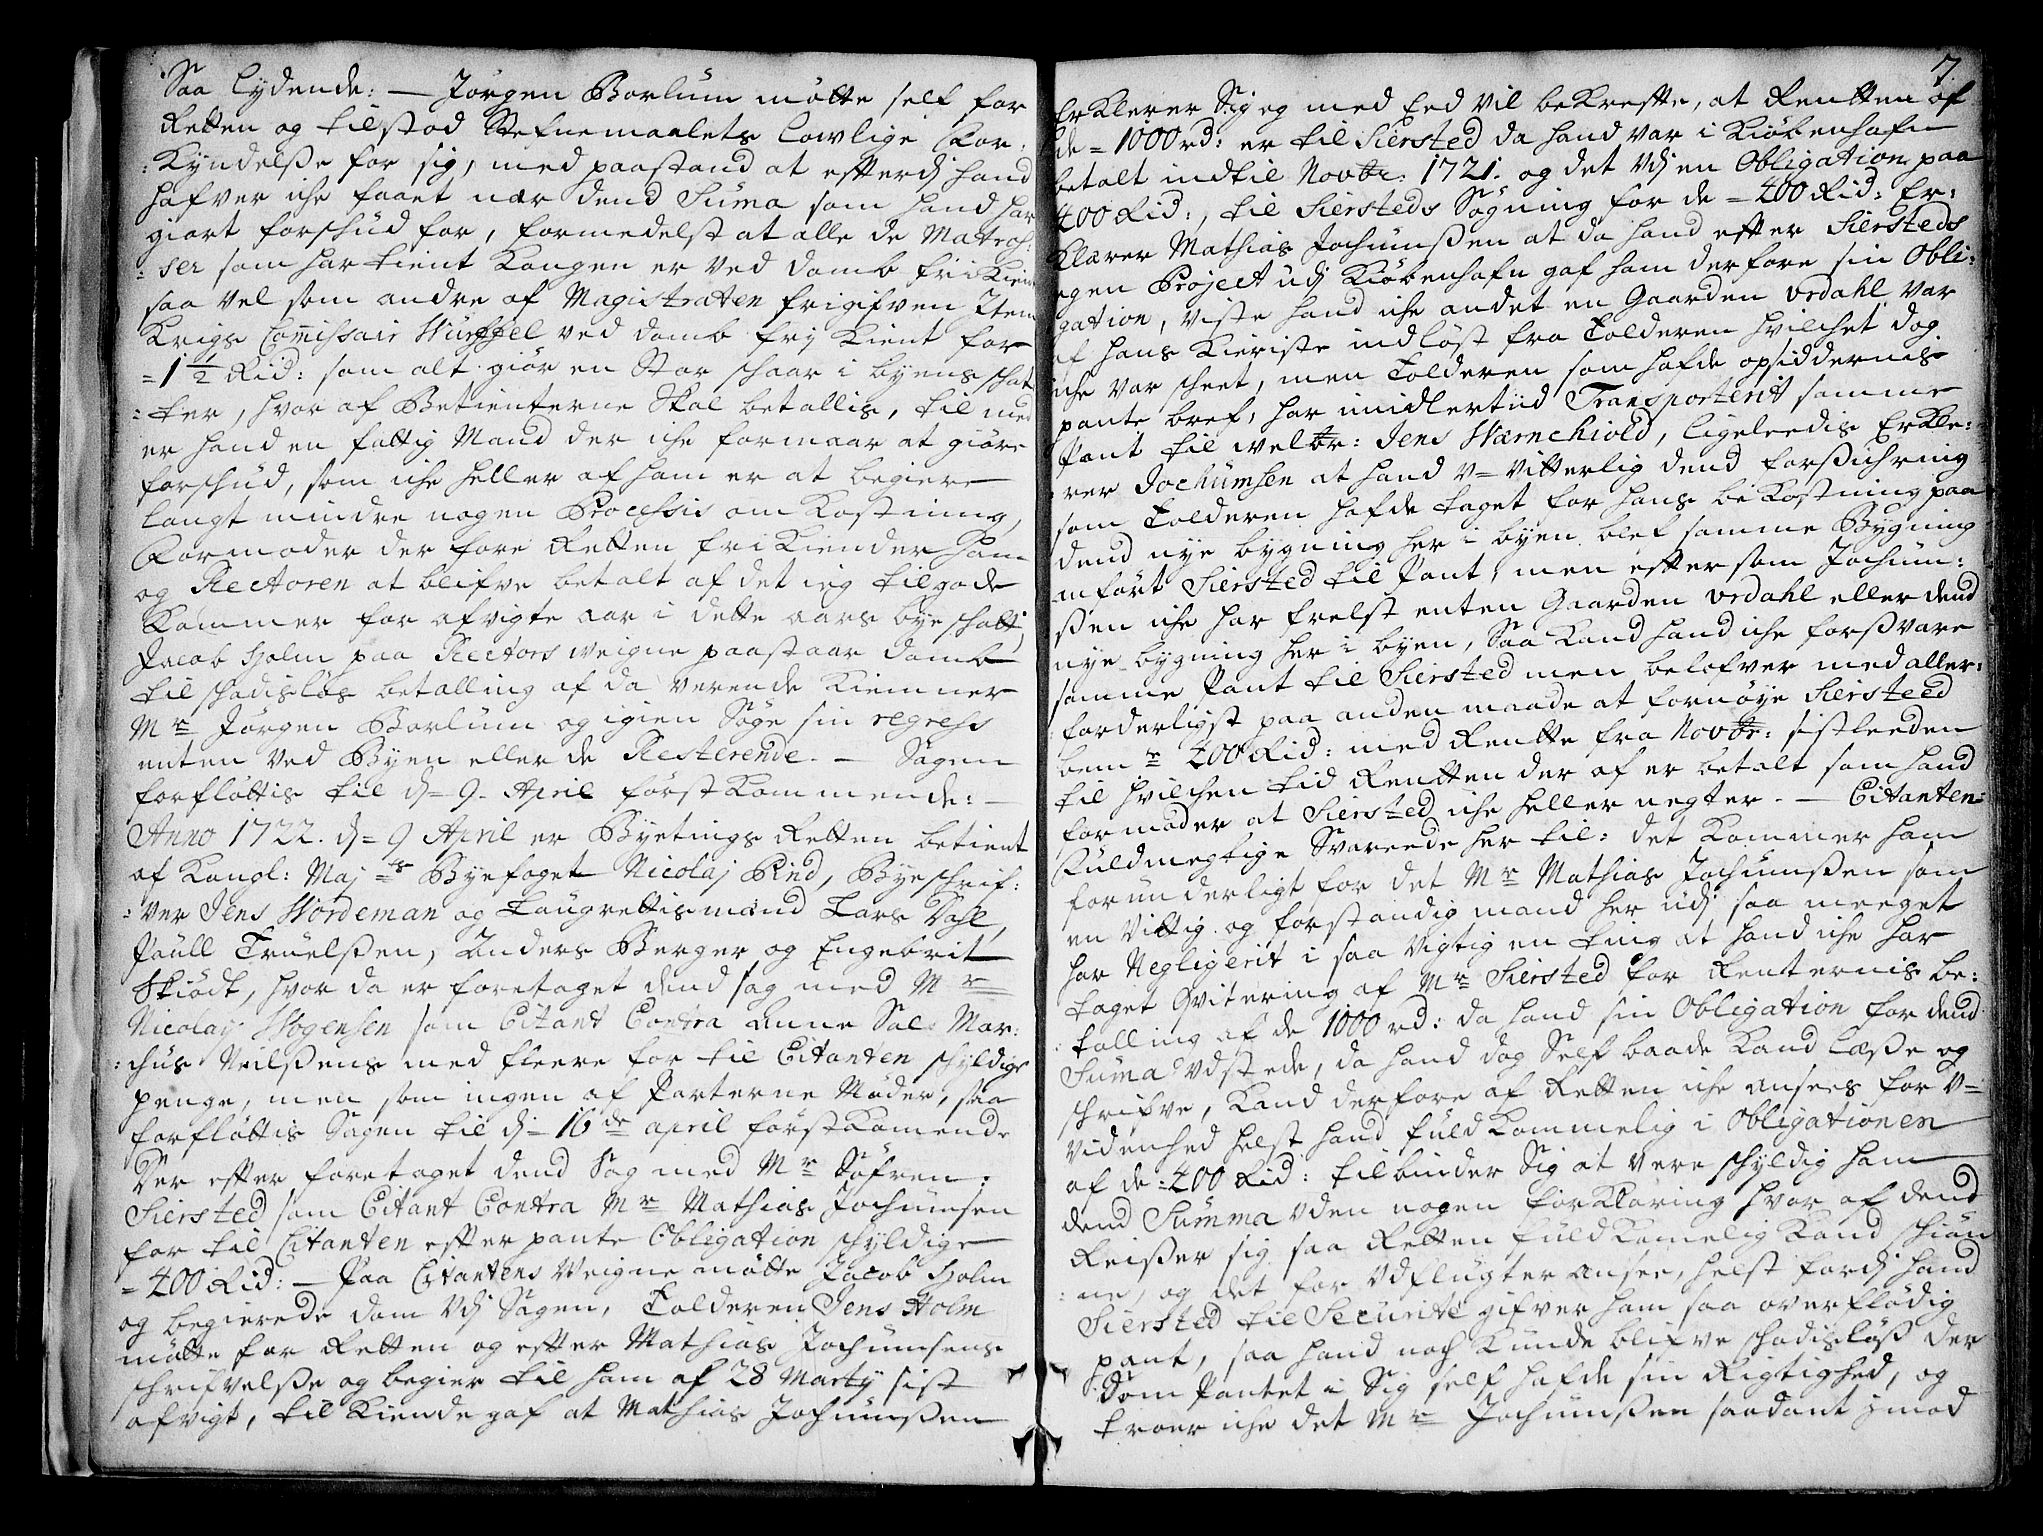 Saa lydende: — Jörgen Borlum mötte self for
Retten og tilstod Stefnemaalets lowlige For:
:kyndelße for sig, med paastand at efterdj hand
hafver iche faaet nær dend Suma som hand har
giort forschud for, formedelst at alle de Matroh:
:ser som har tient Kongen er ved domb frikiend
saa vel som andre af Magistraten frigifven Item
Krigs Comissair Würffel ved domb frj kient for
=1½ Rid: som alt giör en Stor schaar i byens schat
:ter, hvor af Betienterne Skal betallis, til med
er hand en fattig Mand der iche formaar at giöre
forschud, som iche heller af ham er at begiere
langt mindre nogen Processis om Kostning,
Formoder der fore Retten frikiender ham
og Rectoren at blifve betalt af det ieg tilgode
Kommer for afvigte aar i dette aars bye schatt,
Jacob Holm paa Rectors weigne paastaar domb
til schadislös betalling af da verende Kiemner
Mr Jörgen Borlum og igien Söge sin regress
enten ved Byen eller de Resterende. — Sagen
forflöttis til dj= 9. April först Kommende: —
Anno 1722. dj= 9 April er Byetings Retten betient
af Kongl: Maj=ts Byefoget Nicolaj Pind, Byeschrif:
:ver Jens Wordeman og Laugrettismænd Lars Dahl,
Poull Truelßen, Anders Berger og Engebrit
Skiödt, hvor da er foretaget dend sag med Mr
Nicolay Wogensen som Citant Contra Anne Sal: Mar:
:chus Neilßens med fleere for til Citanten schyldige
penge, men som ingen af Parterne Möder, saa
forflöttis Sagen til dj= 16de april förstkomende
Der efter foretaget dend Sag med Mr Söfren
Siersted som Citant Contra Mr Mathias Jochumsen
for til Citanten efter pante Obligation schyldige
=400 Rid: — Paa Citantens Weigne mötte Jacob Holm
og begierede dom Vdj Sagen, Tolderen Jens Holm
mötte for Retten og efter Mathias Jochumsens
schrifvelße og begier til ham af 28 Marty sist
afvigt, til kiende gaf at Mathias Jochumßen
7.
Erklerer Sig og med Eed vil bekrefte, at Rentten af
de =1000 rd: er til Siersted da hand var i Kiöbenhafn
betalt indtil Novbr: 1721. og det Vdj en Obligation paa
400 Rid:, til Siersteds Sögning for de =400 Rid: Er:
klærer Mathias Jochumßen at da hand efter Siersteds
egen Project udj Kiöbenhafn gaf ham derfore sin Obli:
gation, viste hand iche andet en Gaarden Urdahl var
af hans Kieriste indlöst fra Tolderen hvilchet dog
iche var scheet, men Tolderen som hafde opsiddernis
pante bref, har imidlertiid Transporterit samme
Pant til welbr: Jens Wærnchiold, ligeleedis Erkle:
rer Jochumsen at hand V= vitterlig dend forßichring
som Tolderen hafde taget for hans bekostning paa
dend nye bygning her i byen, blef samme Bygning
anfört Siersted til Pant, men eftersom Jochum:
ßen iche har frelst enten Gaarden Urdahl eller dend
nye bygning her i byen, Saa kand hand iche forßvare
samme Pant til Siersted men belofver med aller:
forderligst paa anden maade at fornöye Siersteed
bem=te 400 Rid: med Rentte fra Novbr: sistleeden
til hvilchen tid Rentten der af er betalt som hand
formoder at Siersted iche heller negter. — Citanten:
Fuldmegtige Svareede her til: det kommer ham
forunderligt for det Mr Mathias Jochumßen som
en Vittig og forstandig mand her udj saa meeget
har Negligerit i saa vigtig en ting at hand iche har
taget Qvitering af Mr Siersted for Renternis be:
talling af de 1000 rd: da hand sin Obligation for dend
Suma Udstede, da hand dog Self baade Kand læße og
schrifve, Kand derfore af Retten iche ansees for V=
videnhed helst hand fuldkommelig i Obligationen
af de =400 Rid: tilbinder Sig at vere schyldig ham
dend Summa Vden nogen forklaring hvor af dend
Reißer sig saa Retten fuldkomelig kand schiön
:ne, og det for Vdflugter ansee, helst fordj hand
Siersted til Securité gifver ham saa overflödig
pant, saa hand noch kunde blifve schadislöß der
:som Pantet i Sig self hafde sin Rigtighed, og
troer iche det Mr Jochumßen saadant imod